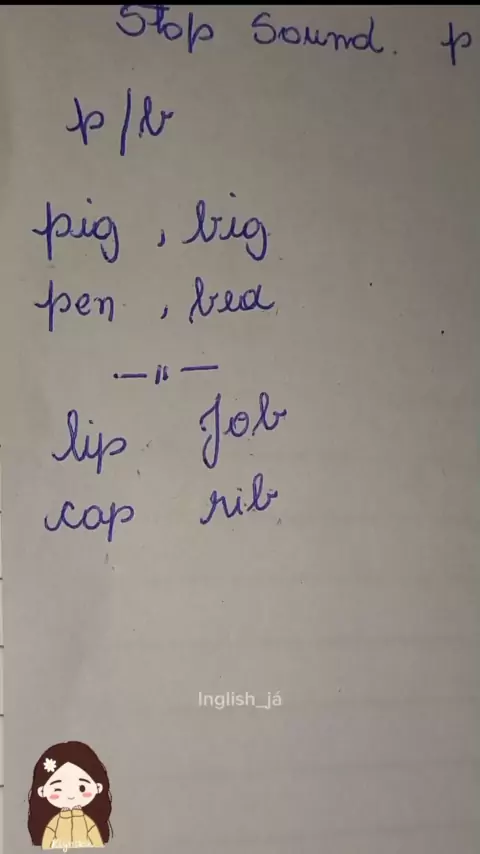 Stop Sound. p
p/b
pig, big
pen, bed
— " —
lip Job
cap rib
Inglish_já